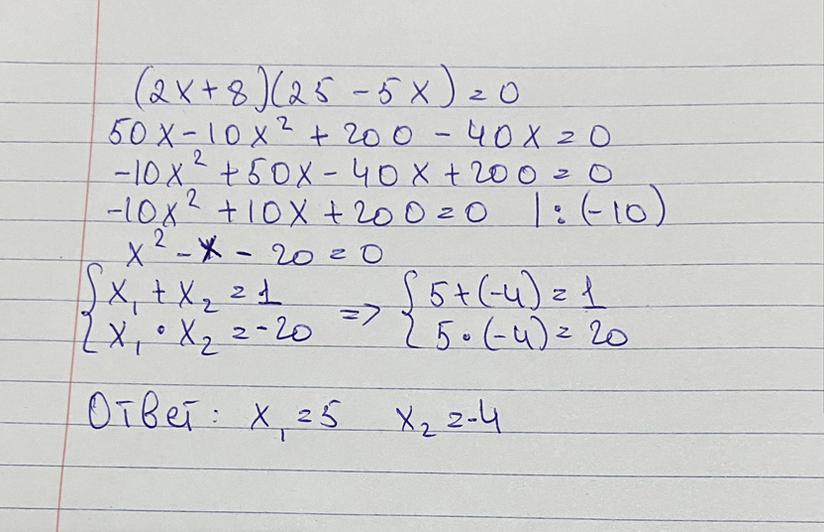 (2x+8)(25-5x)=0
50x-10x²+200-40x=0
-10x²+50x-40x+200=0
-10x²+10x+200=0 |:(-10)
x²-x-20=0
{x₁+x₂=1 => {5+(-4)=1
{x₁•x₂=-20 {5•(-4)=20
Ответ: x₁=5 x₂=-4